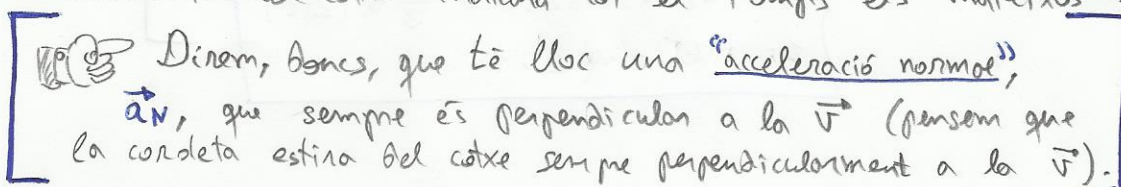 Direm, doncs, que té lloc una "acceleració normal",
a⃗N, que sempre és perpendicular a la v⃗ (pensem que
la cordeta estira del cotxe sempre perpendicularment a la v⃗).